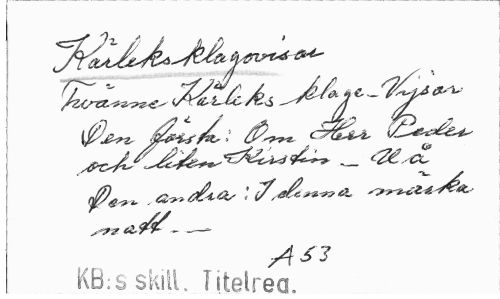 Kärleksklagovisor
Tvänne Kärleks klage-Vijsor
Den första: Om Herr Peder
och liten Kirstin - U å
Den andra: I denna märka
natt. --
A 53
KB:s skill. Titelreg.